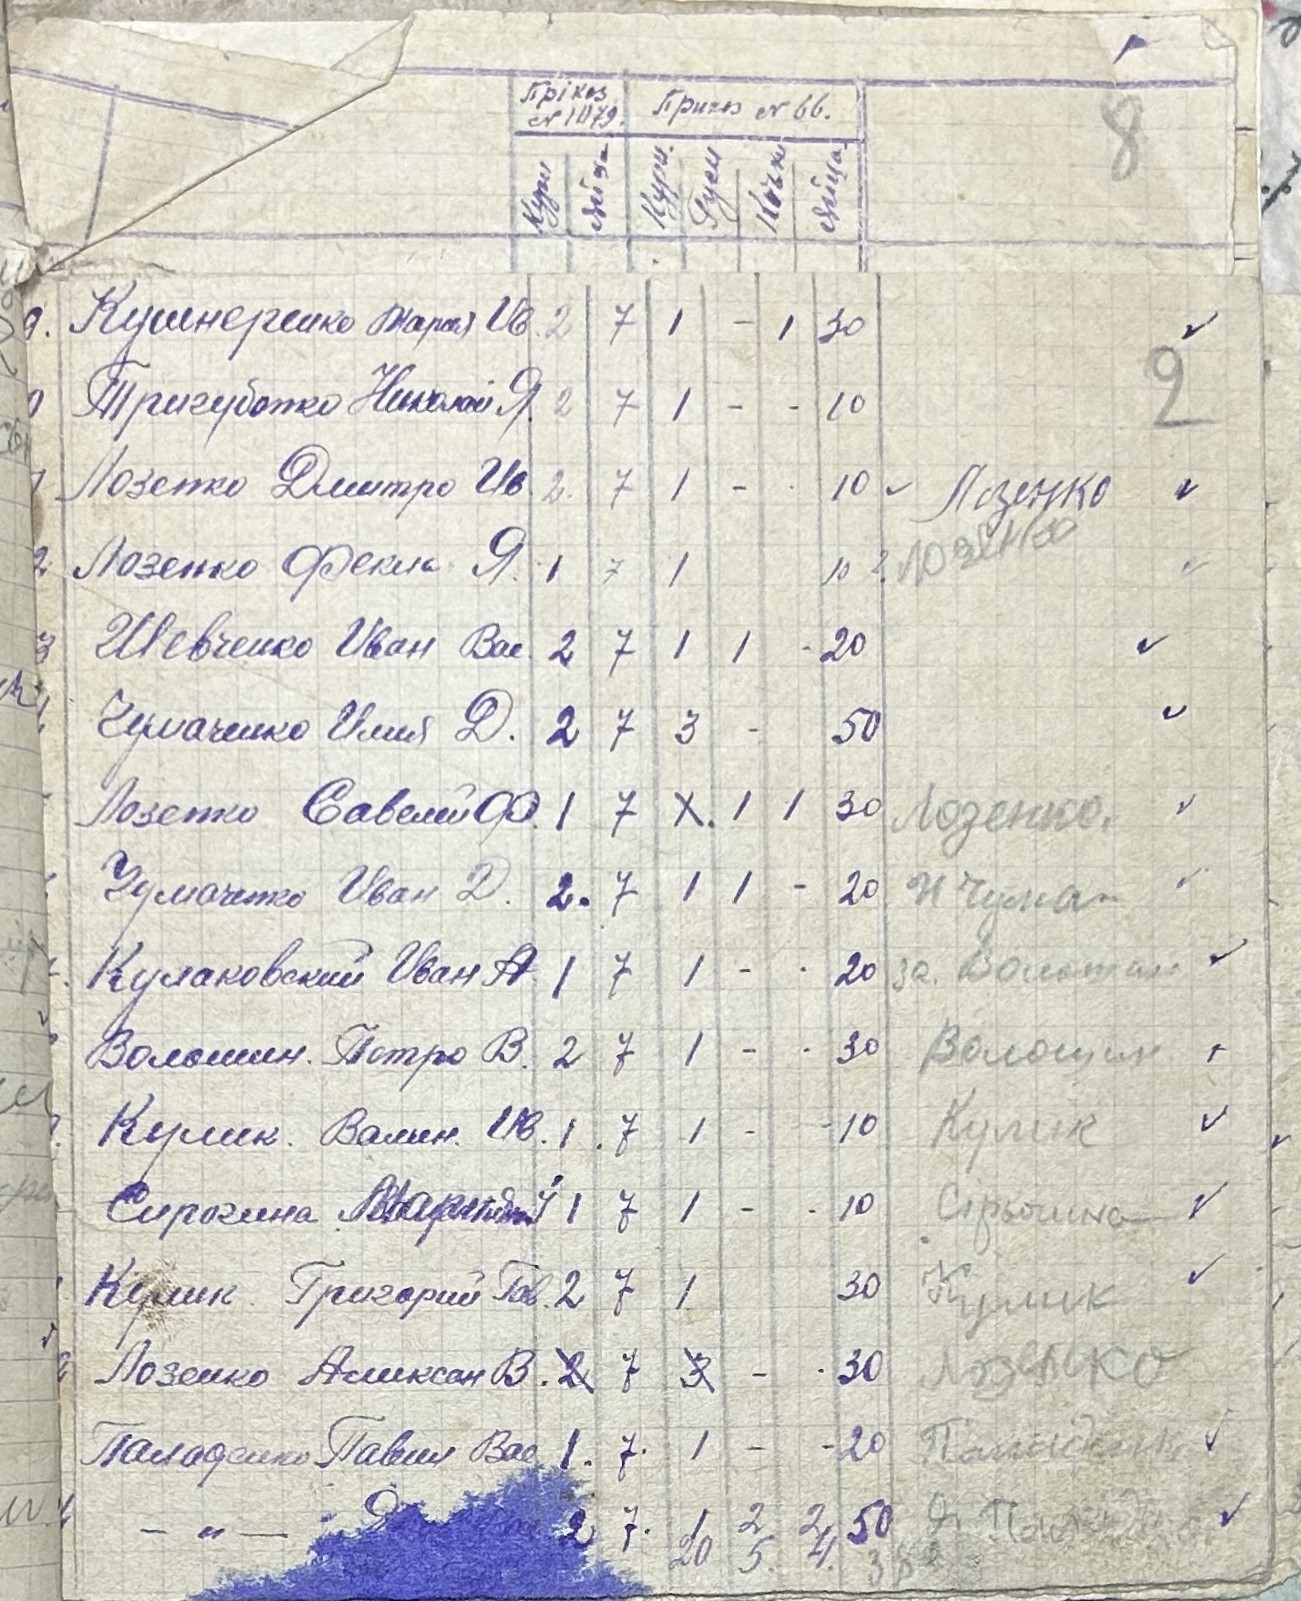 Прiказ Приказ № 66.
№ 1079.
Кури Яйца Кури Гуси Качки Яйца
8
9. Кушнеренко Мария Ив. 2 7 1 - 1 30
2
Тригубенко Николай Я. 2 7 1 - - 10
Лозенко Дмитро Ив. 2. 7 1 - - 10 Лозенко
2 Лозенко Фекла Я. 1 7 1 10 Лозенко
3 Шевченко Иван Вас. 2 7 1 1 - 20
Чумаченко Илия Д. 2 7 3 - 50
Лозенко Савелий Ф. 1 7 1 1 30 Лозенко.
Чумаченко Иван Д. 2. 7 1 1 - 20 И Чума
Кулаковский Иван А. 1 7 1 - - 20 за. Волошин
Волошин. Петро В. 2 7 1 - - 30 Волошин
Кулик. Валин. Ив. 1. 7 1 - - 10 Кулик
Сирогина 1 7 1 - - 10
Кулик Григорий Гав. 2 7 1 30 Кулик
Лозенко Аликсан В. 2 7 3 - - 30 Лозенко
Паладенко Павел Вас 1. 7. 1 - - 20
— " — 2 7. 1 2 2 50
20 5. 4.